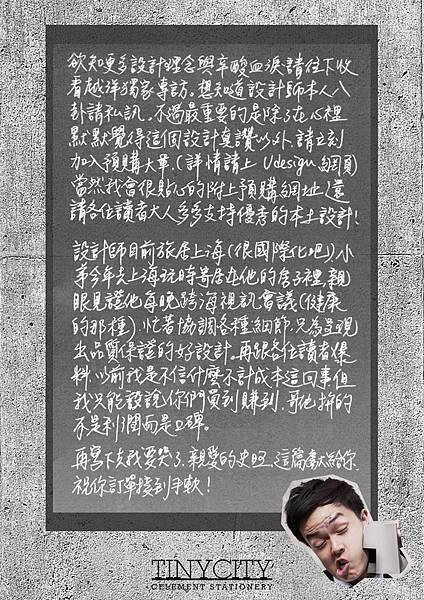 欲知更多設計理念與辛酸血淚,請往下收
看越洋獨家專訪。想知道設計師本人八
卦請私訊。不過最重要的是除了在心裡
默默覺得這個設計真讚以外,請立刻
加入預購大軍。(詳情請上 Udesign 網頁)
當然我會很貼心的附上預購網址,還
請各位讀者大人多多支持優秀的本土設計!
設計師目前旅居上海(很國際化吧),小
弟今年去上海玩時寄居在他的房子裡,親
眼見證他每晚跨海視訊會議(健康
的那種),忙著協調各種細節,只為呈現
出品質保證的好設計。再跟各位讀者爆
料,以前我是不信什麼不計成本這回事,但
我只能說,你們買到賺到,哥他拚的
不是利潤而是口碑。
再寫下去我要哭了,親愛的史旺,這篇獻給你,
祝你訂單接到手軟!
TINYCITY
CELEMENT STATIONERY